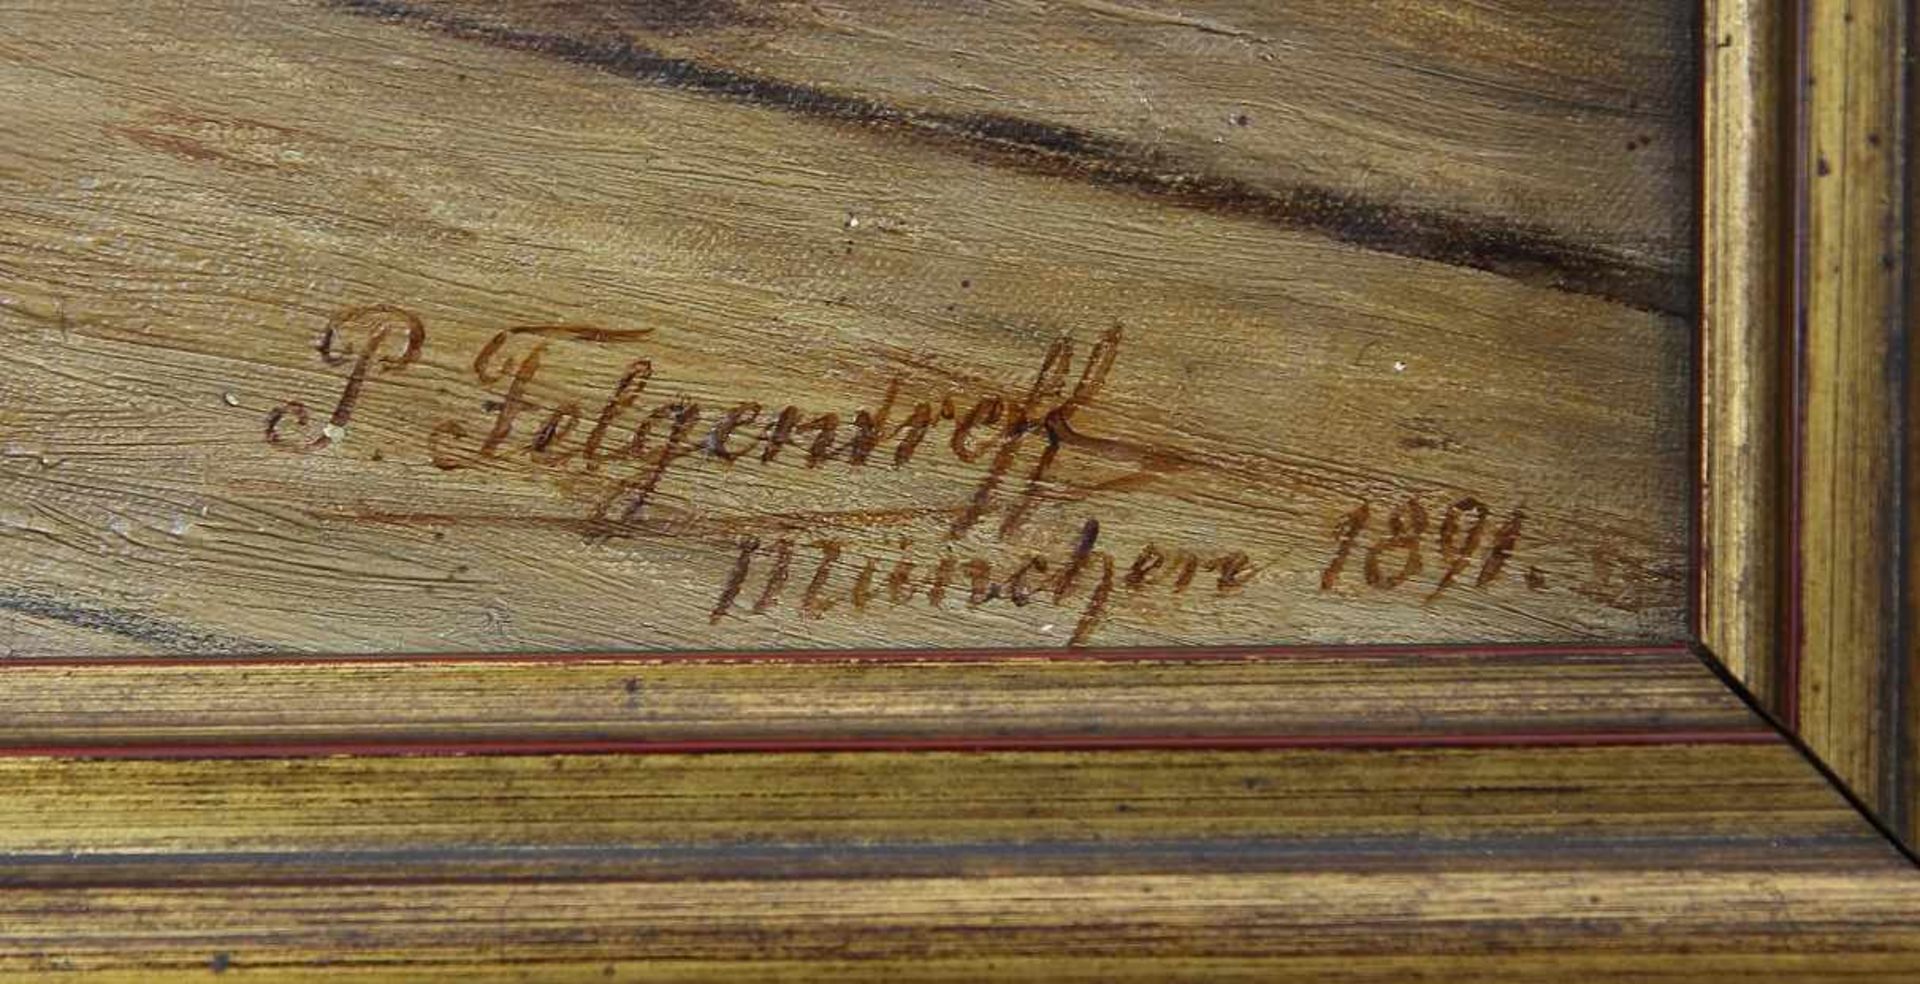 P. Felgentreff
München 1891.